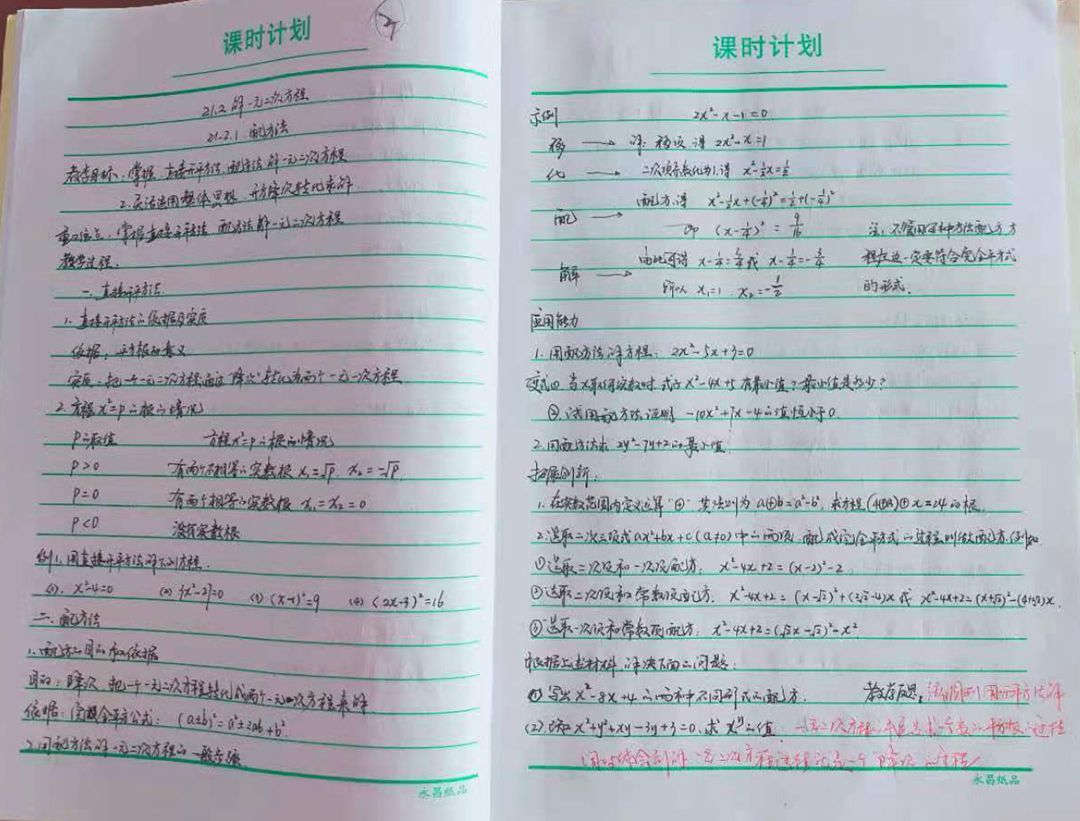 课时计划
21.2 解一元二次方程
21.2.1 配方法
教学目标：掌握直接开平方法,配方法解一元二次方程
2.灵活运用整体思想 开方降次转化求解
重难点：掌握直接开平方法 配方法解一元二次方程
教学过程.
一.直接开平方法
1.直接开平方法的依据及实质
依据：平方根的意义
实质：把一个一元二次方程通过"降次"转化为两个一元一次方程
2.方程x²=p的根的情况
p的取值 方程x²=p的根的情况
p>0 有两个不相等的实数根 x₁=√p, x₂=-√p
p=0 有两个相等的实数根 x₁=x₂=0
p<0 没有实数根
例1.用直接开平方法解下列方程.
(1). x²-4=0 (2) 3x²-27=0 (3) (x-1)²=9 (4) (2x-3)²=16
二.配方法
1.配方的目的和依据
目的：降次 把一个一元二次方程转化成两个一元一次方程来解
依据：完全平方公式：(a±b)²=a²±2ab+b²
2.用配方法解一元二次方程的一般步骤
永昌纸品
课时计划
示例 2x²-x-1=0
移 → 解：移项,得 2x²-x=1
化 → 二次项系数化为1,得 x²-½x=½
配 → 配方,得 x²-½x+(-¼)²=½+(-¼)²
即 (x-¼)²=9/16 注：不管用怎样方法配方,方
解 → 由此可得 x-¼=¾或 x-¼=-¾ 程左边一定要符合完全平方式
所以 x₁=1 x₂=-½ 的形式.
应用能力
1.用配方法解方程：2x²-5x+3=0
变式① 当x取何实数时,式子x²-4x+5有最小值?最小值是多少?
②试用配方法证明 -10x²+7x-4的值恒小于0
2.用配方法求2y²-7y+2的最小值
拓展创新.
1.在实数范围内定义运算"⊕" 其法则为a⊕b=a²-b², 求方程(4⊕3)⊕x=24的根.
2.选取二次三项式ax²+bx+c(a≠0)中的两项,配成完全平方式的过程叫做配方.例如
①选取二次项和一次项配方：x²-4x+2=(x-2)²-2
②选取二次项和常数项配方. x²-4x+2=(x-√2)²+(2√2-4)x 或 x²-4x+2=(x+√2)²-(4+2√2)x
③选取一次项和常数项配方：x²-4x+2=(√2x-√2)²-x²
根据上述材料,解决下面的问题：
(1)写出x²-8x+4的两种不同形式的配方. 教学反思：
(2)已知x²+y²+xy-3y+3=0,求xʸ的值.
永昌纸品